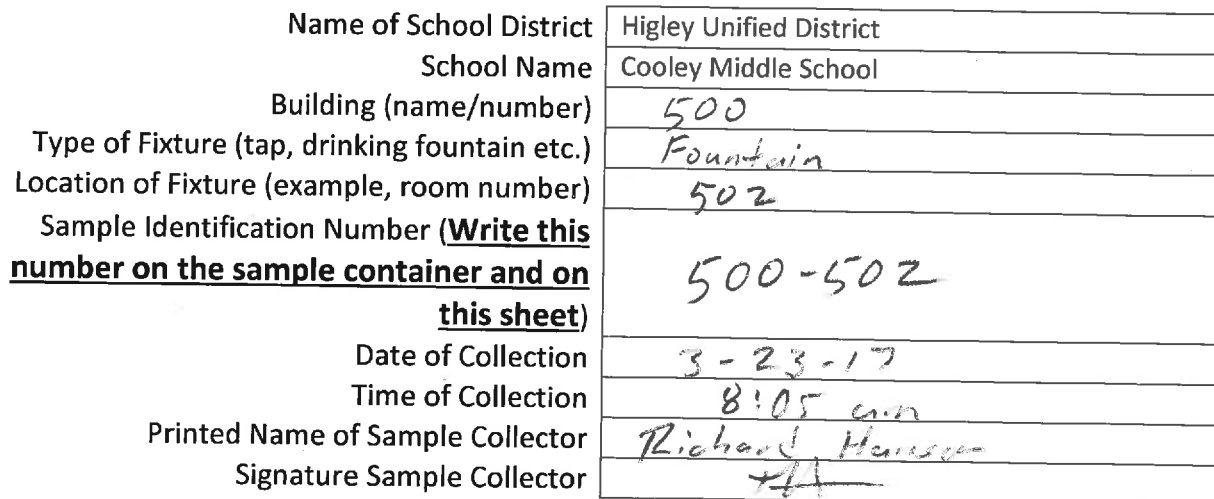 Name of School District Higley Unified District
School Name Cooley Middle School
Building (name/number) 500
Type of Fixture (tap, drinking fountain etc.) Fountain
Location of Fixture (example, room number) 502
Sample Identification Number (Write this
number on the sample container and on 500-502
this sheet)
Date of Collection 3-23-17
Time of Collection 8:05 am
Printed Name of Sample Collector Richard
Signature Sample Collector